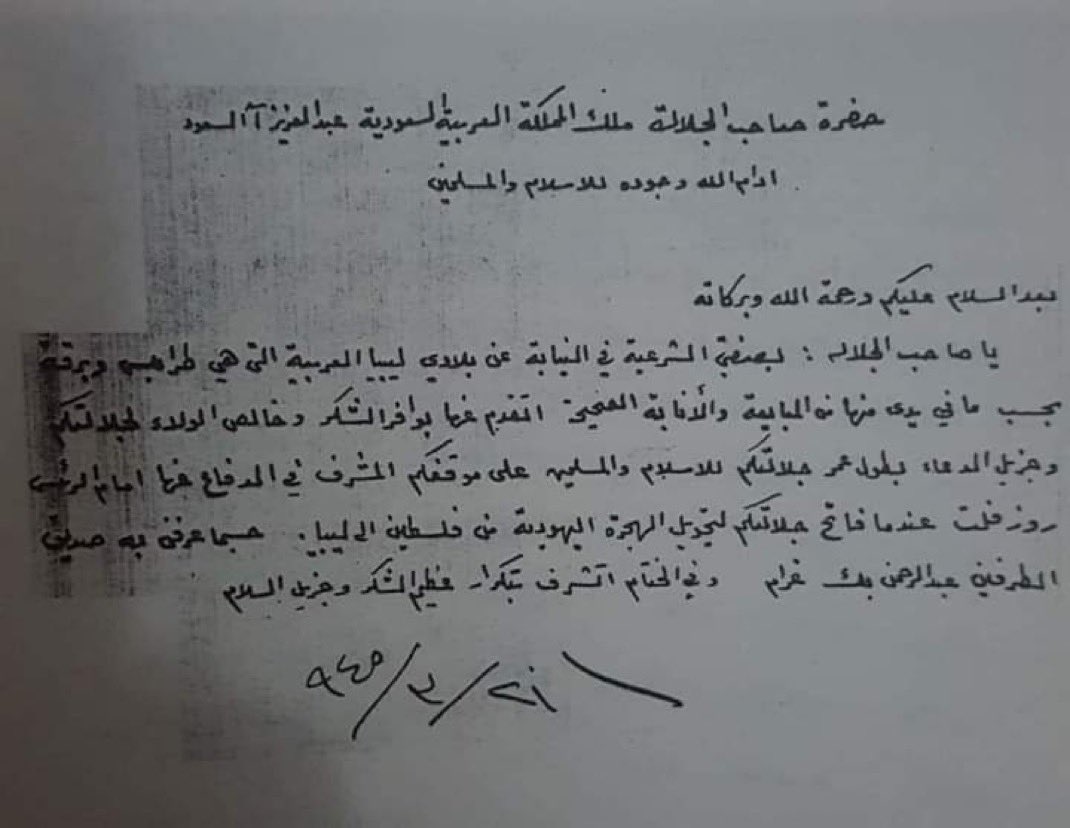 حضرة صاحب الجلالة ملك المملكة العربية السعودية عبدالعزيز آل السعود
ادام الله وجوده للاسلام والمسلمين
بعد السلام عليكم ورحمة الله وبركاته
يا صاحب الجلاله : بصفتي الشرعية في النيابة عن بلادي ليبيا العربية التي هي طرابلس وبرقة
بحسب ما في يدى منها من المبايعة والأنابة الصحيحة اتقدم عنها بوافر الشكر وخالص الولاء لجلالتكم
وجزيل الدعاء بطول عمر جلالتكم للاسلام والمسلمين على موقفكم المشرف في الدفاع عنها امام الرئيس
روزفلت عندما فاتح جلالتكم لتحويل الهجرة اليهودية من فلسطين الى ليبيا . حسبما عرفني به صديق
الطرفين عبدالرحمن بك عزام وفي الختام اتشرف بتكرار عظيم الشكر وجزيل السلام
٩٤٥/٣/٢١